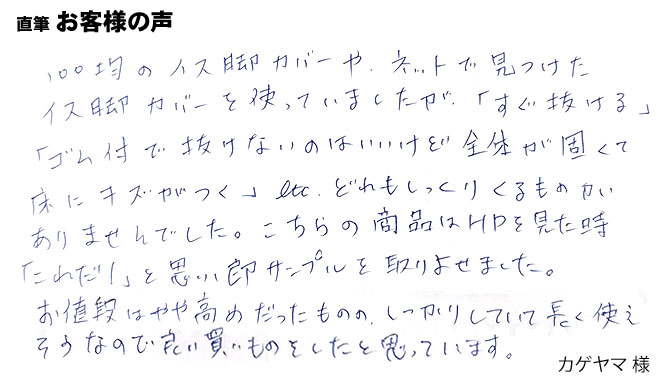 直筆 お客様の声
100均のイス脚カバーや、ネットで見つけた
イス脚カバーを使っていましたが、「すぐ抜ける」
「ゴム付で抜けないのはいいけど全体が固くて
床にキズがつく」etc. どれもしっくりくるものが
ありませんでした。こちらの商品はHPを見た時
「これだ!」と思い、即サンプルを取りよせました。
お値段はやや高めだったものの、しっかりしていて長く使え
そうなので良い買いものをしたと思っています。
カゲヤマ 様